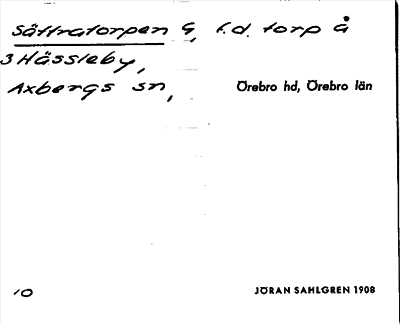 Sättratorpen G, f.d. torp å
3 Hässleby,
Axbergs sn, Örebro hd, Örebro län
10 JÖRAN SAHLGREN 1908